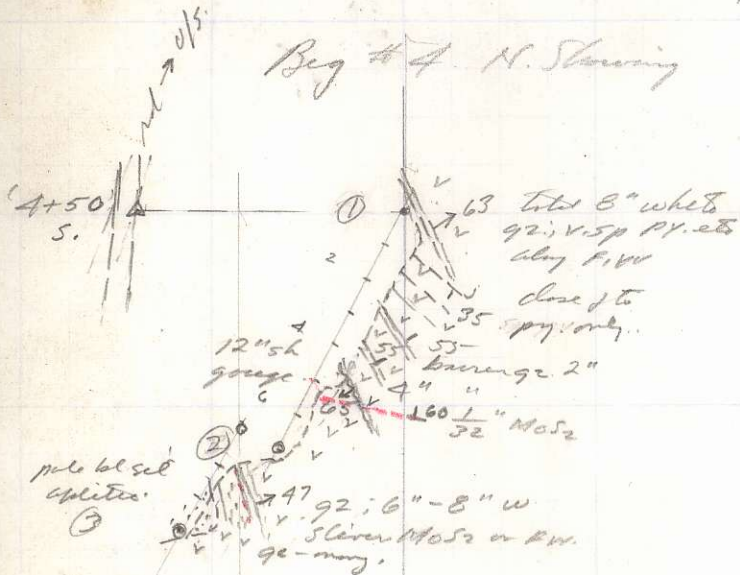 Beg # 4 N. Showing
rd → U/S.
4+50
S.
①
63 total 8" white
qz; v. sp PY. etc
along F.W
close j to
py. only.
35
55
55
barren qz 2"
4" "
2
4
12" sh
gouge
6
65
2
60 1/32" MoS2
②
pale bl sil
aplitic
③
47 qz; 6" - 8" w
sliver MoS2 on F.W.
qz-mony.